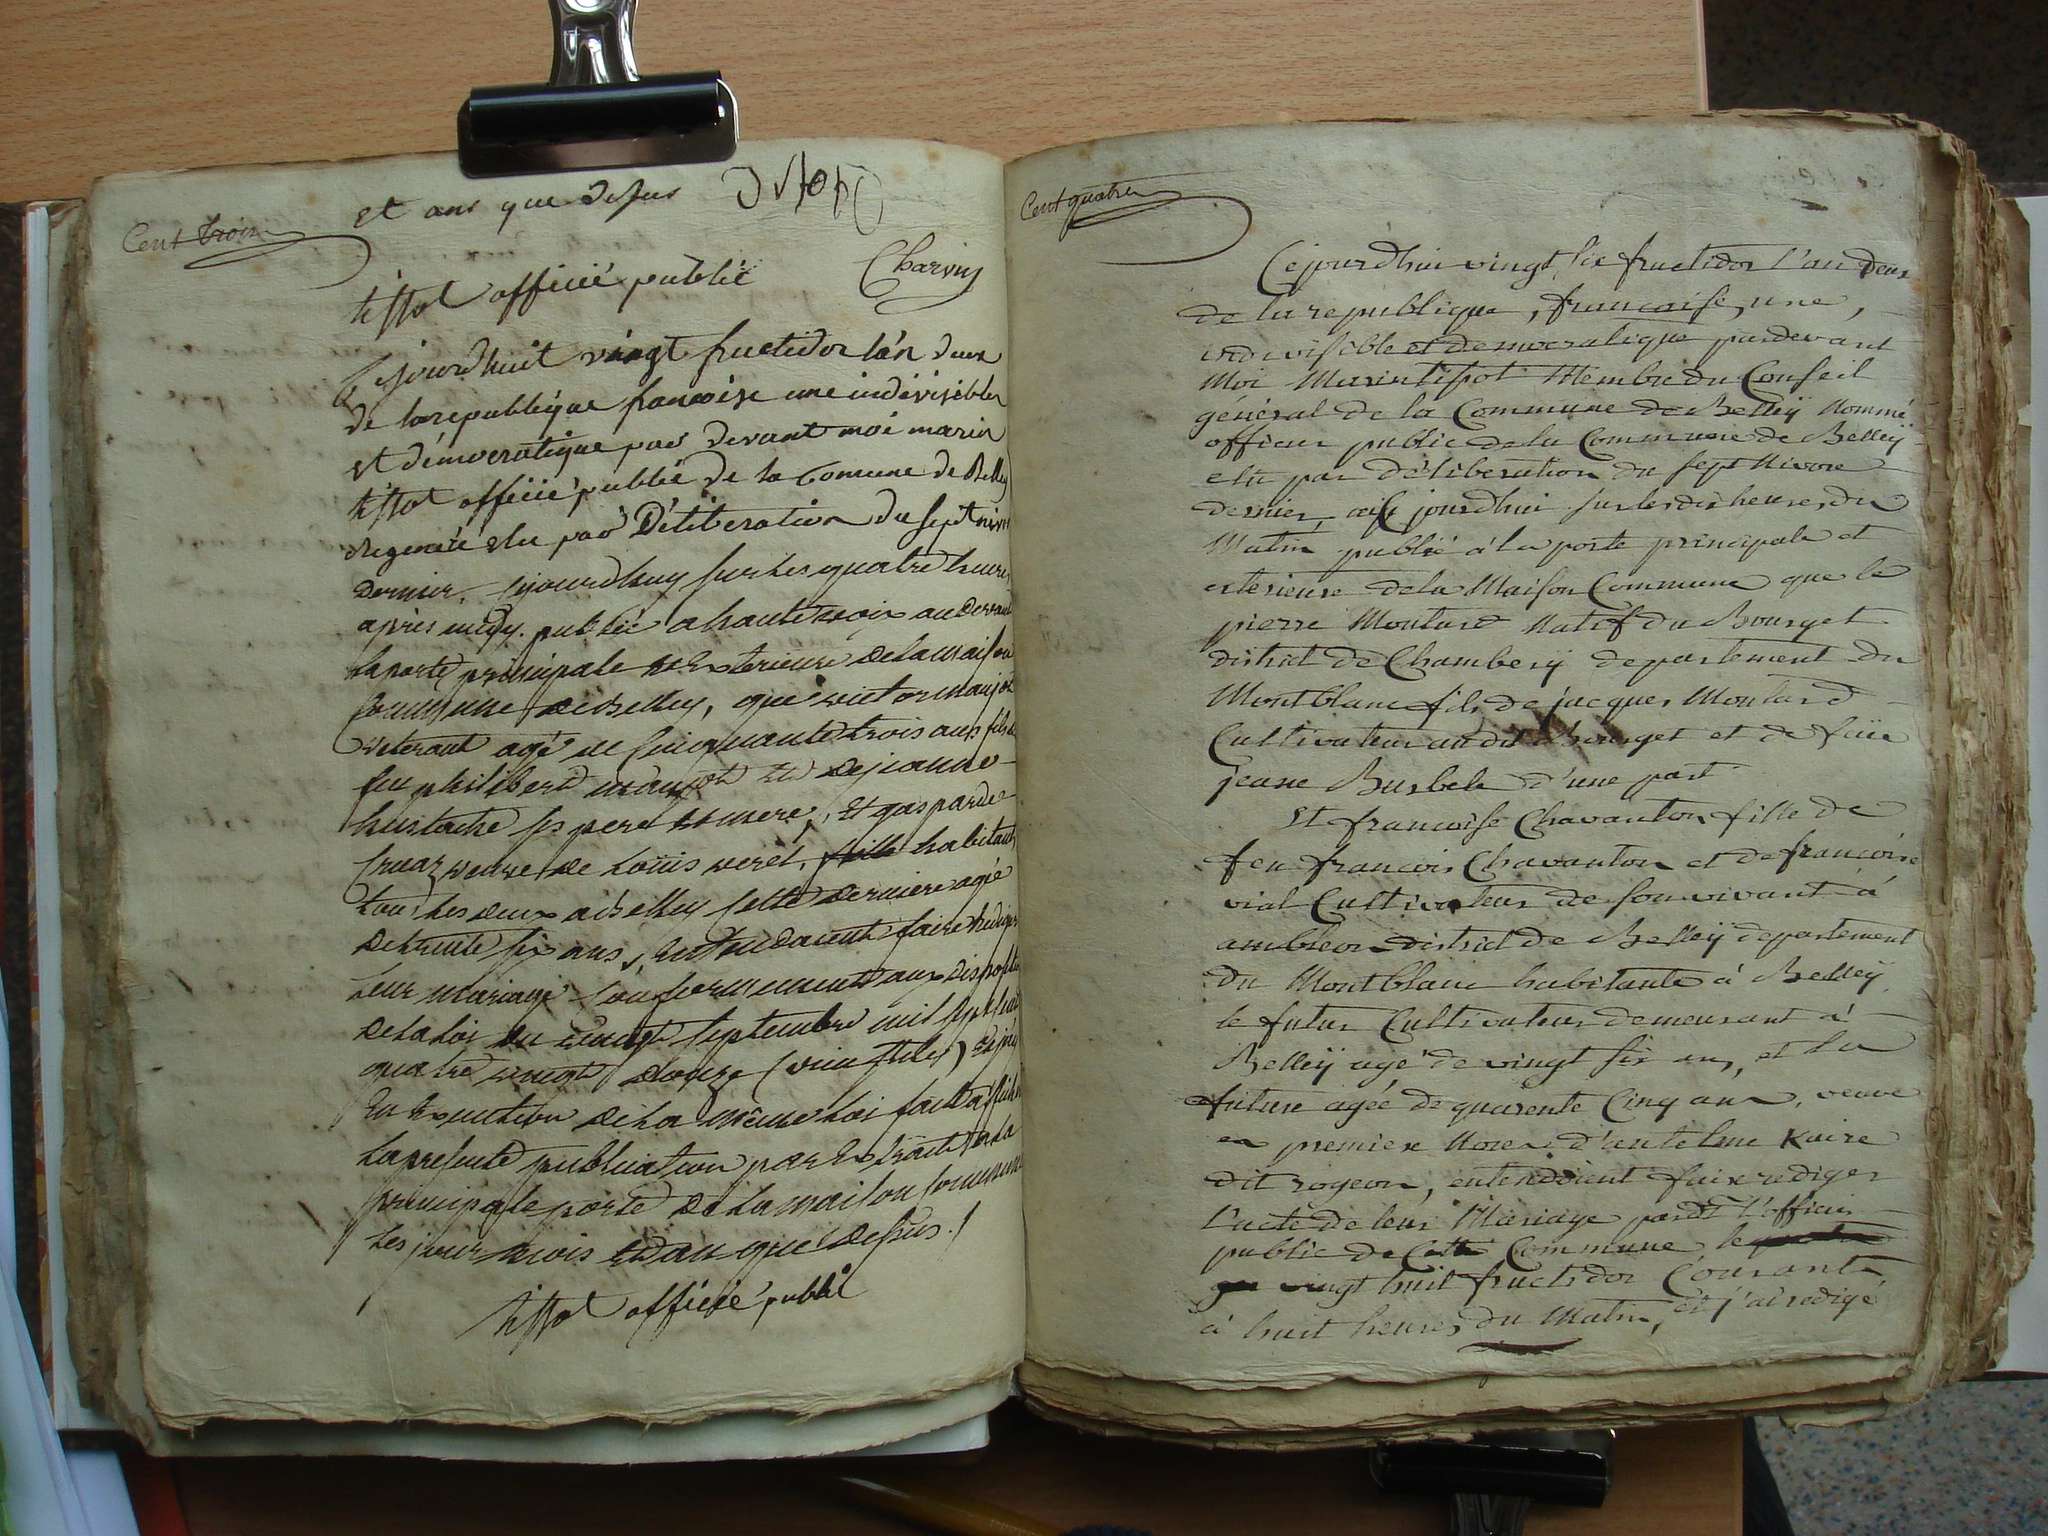 Cent trois
et ans que dessus
Charvin
tissot officié publié
Cejourdhuit vingt fructidor lan deux
de la republéque francoise une indévisibles
et démocratique par devant moé marin
tissot officié publié de la Comune de Belley
élu par Déliberation du sept nivose
dernier, cejourdhuy sur les quatre heures
aprés midy publié a haute voix au devant
la porte principale et Exterieure de la maison
Commune de Belley, que victor maujot
veterant agé de Cinquante trois ans fils de
feu philibert maujot et de jeanne
hustache ses pere et mere, Et gasparde
Cruaz veuve de Loüis veret, habitants
tous Les deux a Belley Cette derniere agée
de trente six ans, Entendaient faire Rediger
Leur mariage Conformement aux dispositions
de la Loi du vingt septembre mil sept cent
quatre vingt douze (vieux stile) Et j'ay
En Execution de La même Loi fait afficher
La présente publication par Extrait a La
principale porte de La maison Commune
Les jour mois Et an que dessus./
tissot officié publié
Cent quatre
Cejourdhui vingt six fructidor l'an deux
de la republique, francaise, une,
indivisible et democratique pardevant
Moi Marin tissot Membre du Conseil
général de la Commune de Belleÿ Nommé
officier public de la Commune de Belleÿ
elu par déliberation du sept Nivose
dernier, ai ce jourdhui sur les dix heures du
Matin publié à la porte principale et
exterieure de la Maison Commune que le
pierre Moutard Natif du Bourget
district de Chamberÿ departement du
Montblanc fils de jacques Moutard
Cultivateur au dit Bourget et de feüe
jeane Burbele d'une part
Et francoise Chavanton fille de
feu francois Chavanton et de francoise
vial Cultivateur de son vivant à
ambleon district de Belleÿ departement
du Montblanc habitante à Belleÿ
le futur Cultivateur demeurant à
Belleÿ agé de vingt six ans, et la
future agée de quarente Cinq ans, veuve
en premiere Noces d'antelme Kaire
dit rogeon, entendoient faire rediger
l'acte de leur Mariage pardt l'officier
public de Cette Commune le
vingt huit fructidor Courant
à huit heures du Matin, et j'ai redigé